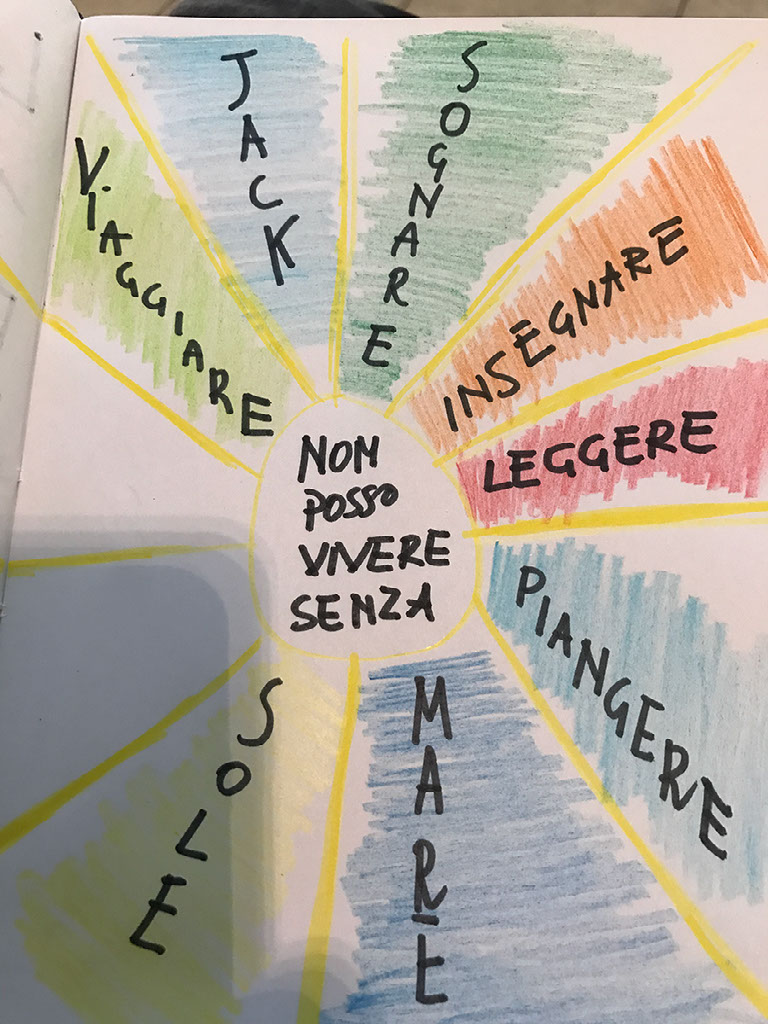 NON
POSSO
VIVERE
SENZA
VIAGGIARE
JACK
SOGNARE
INSEGNARE
LEGGERE
PIANGERE
MARE
SOLE